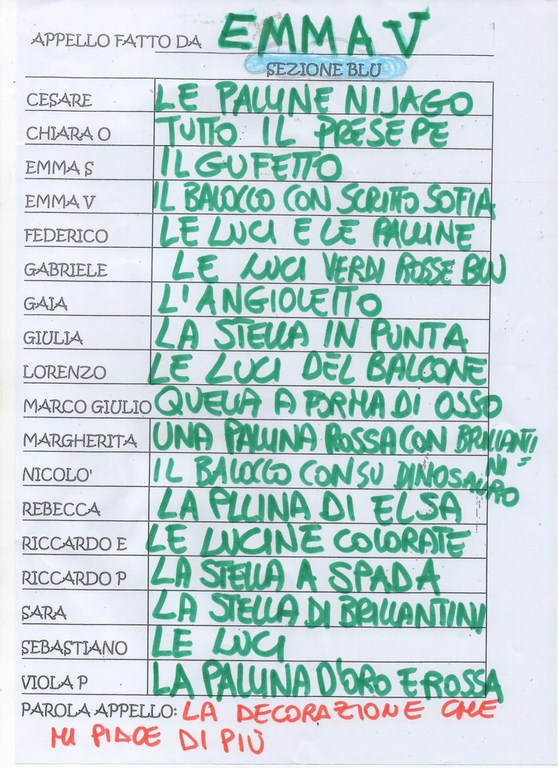 APPELLO FATTO DA EMMA V
SEZIONE BLU
CESARE LE PALLINE NIJAGO
CHIARA O TUTTO IL PRESEPE
EMMA S IL GUFETTO
EMMA V IL BALOCCO CON SCRITTO SOFIA
FEDERICO LE LUCI E LE PALLINE
GABRIELE LE LUCI VERDI ROSSE BLU
GAIA L'ANGIOLETTO
GIULIA LA STELLA IN PUNTA
LORENZO LE LUCI DEL BALCONE
MARCO GIULIO QUELLA A FORMA DI OSSO
MARGHERITA UNA PALLINA ROSSA CON BRILLANTINI
NICOLO' IL BALOCCO CON SU DINOSAURO
REBECCA LA PLLINA DI ELSA
RICCARDO E LE LUCINE COLORATE
RICCARDO P LA STELLA A SPADA
SARA LA STELLA DI BRILLANTINI
SEBASTIANO LE LUCI
VIOLA P LA PALLINA D'ORO E ROSSA
PAROLA APPELLO: LA DECORAZIONE CHE
MI PIACE DI PIÙ